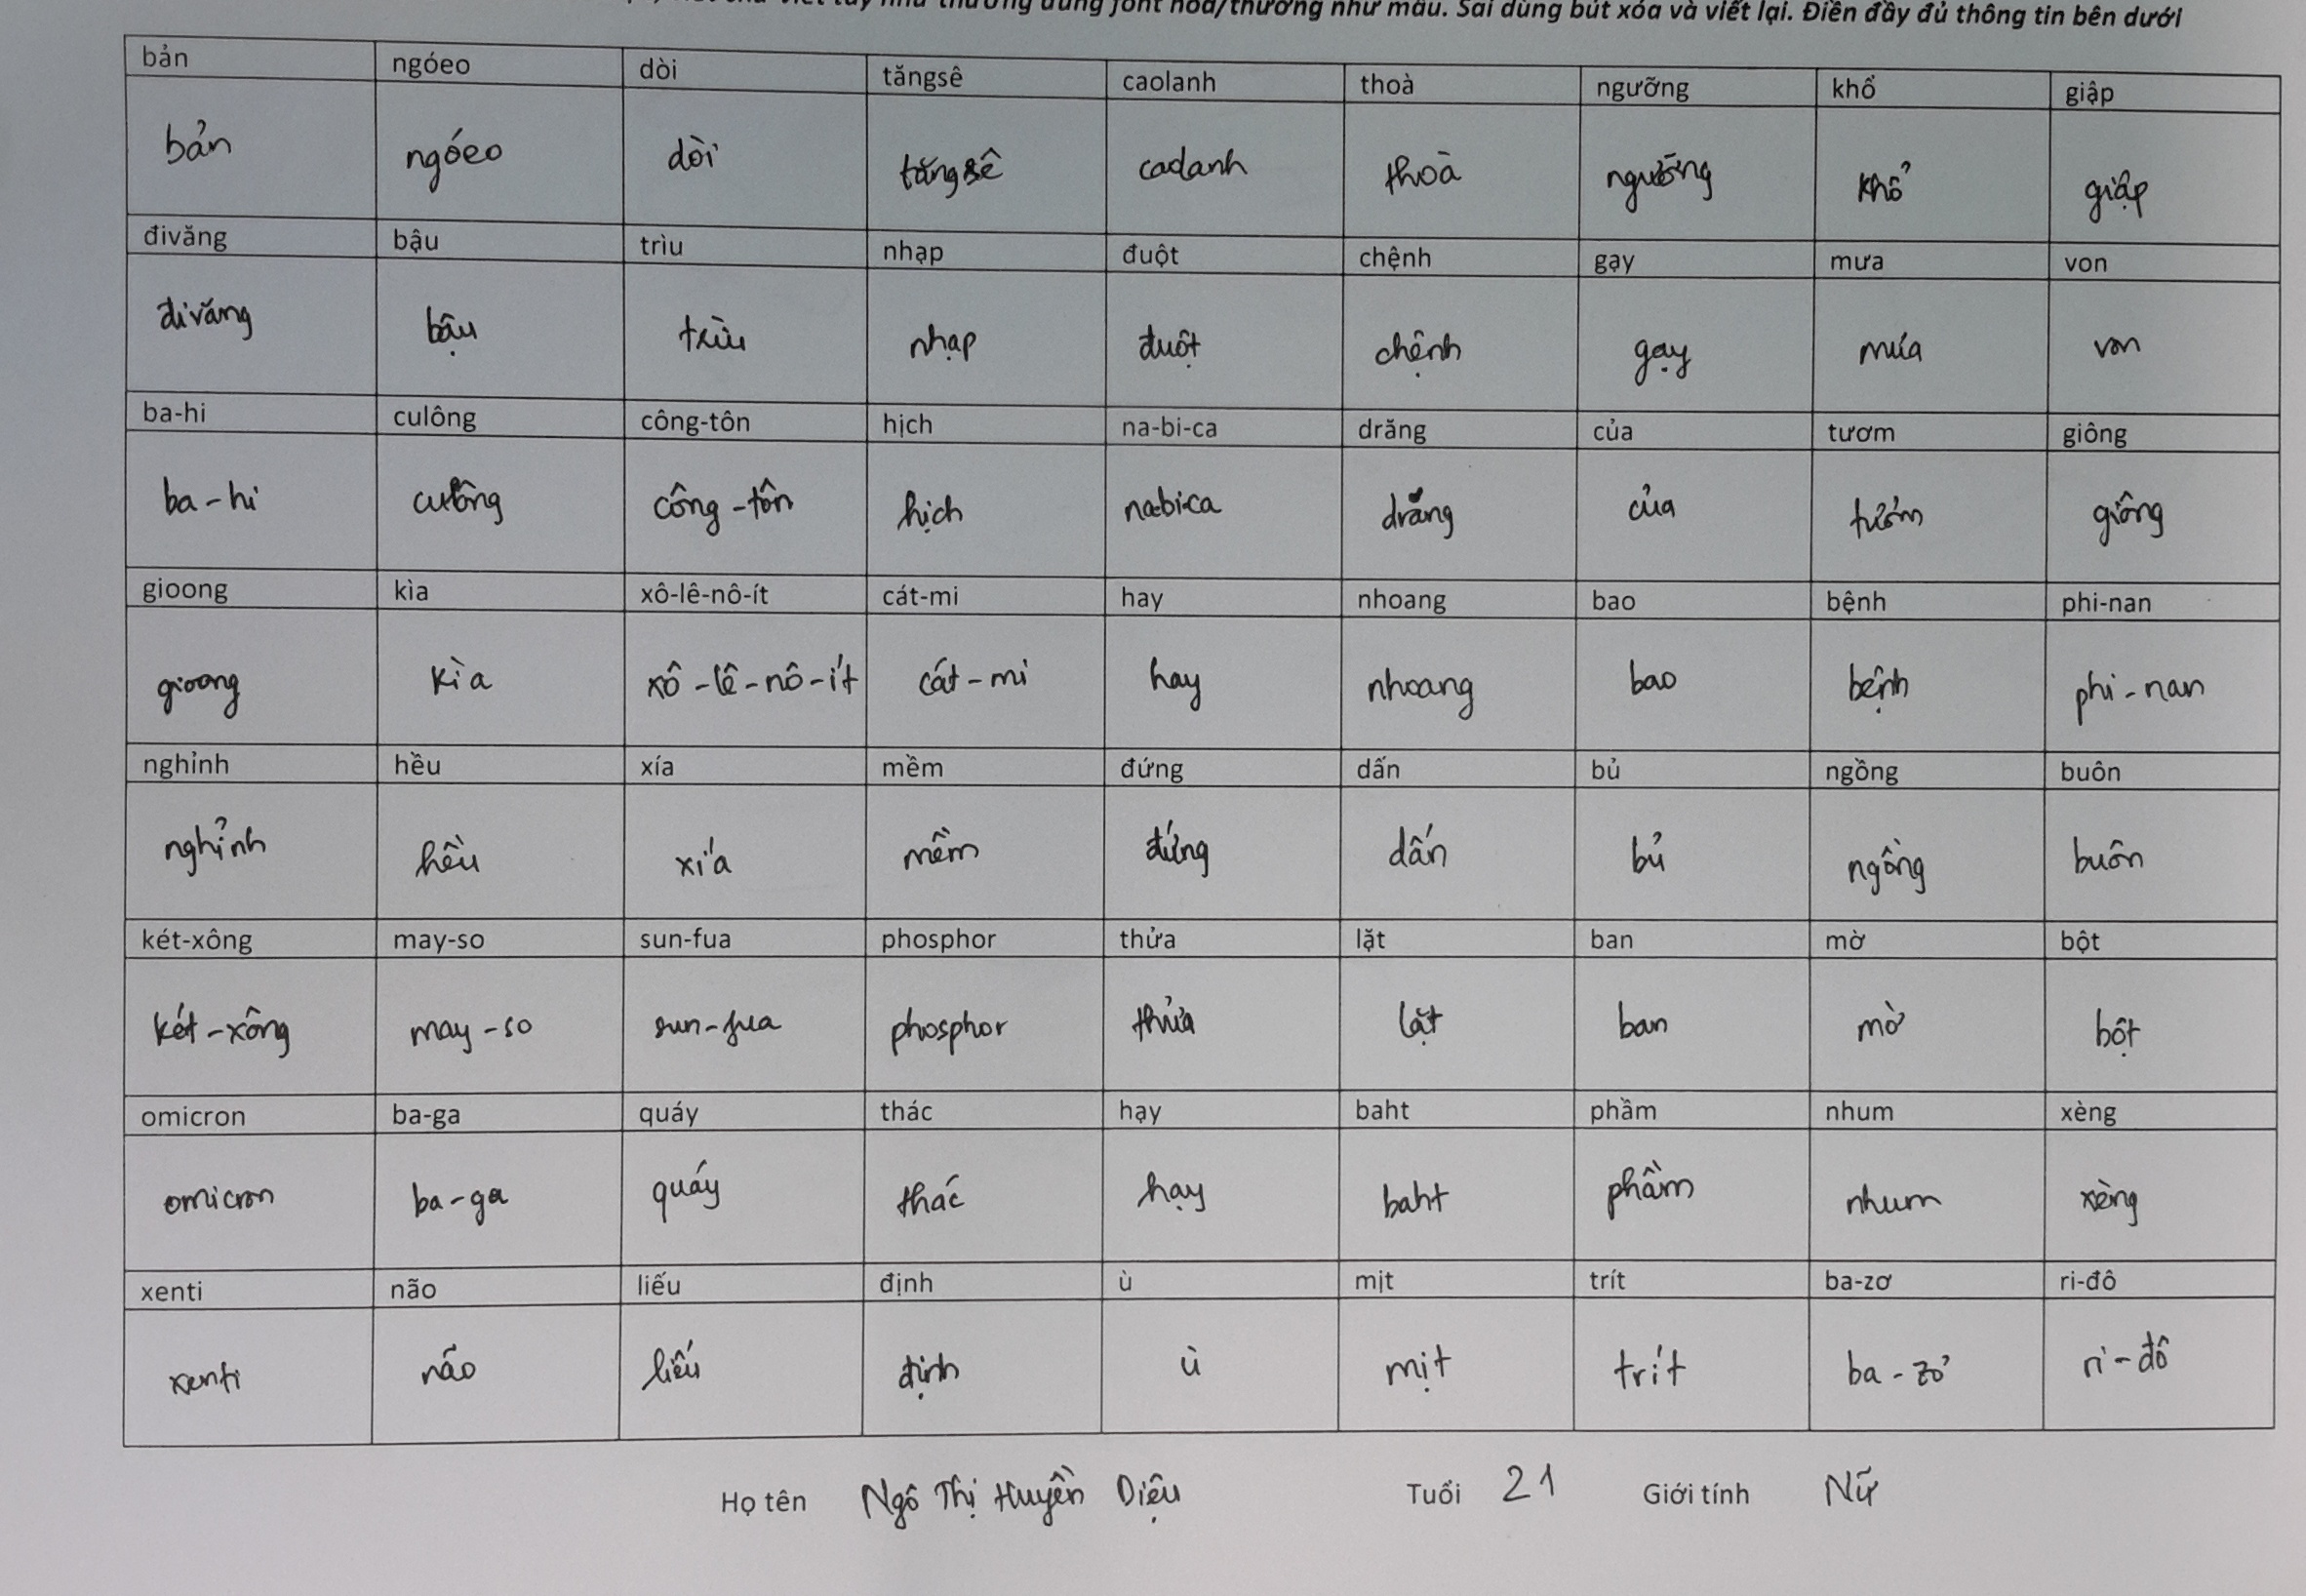 viết chữ viết tay như thường dùng font hoa/thường như mẫu. Sai dùng bút xóa và viết lại. Điền đầy đủ thông tin bên dưới
bản ngóeo dòi tăngsê caolanh thoà ngưỡng khổ giập
bản ngóeo dòi tăngsê caolanh thoà ngưỡng khổ giập
đivăng bậu trìu nhạp đuột chệnh gạy mưa von
đivăng bậu trìu nhạp đuột chệnh gạy mưa von
ba-hi culông công-tôn hịch na-bi-ca drăng của tươm giông
ba-hi culông công-tôn hịch na-bi-ca drăng của tươm giông
gioong kìa xô-lê-nô-ít cát-mi hay nhoang bao bệnh phi-nan
gioong kìa xô-lê-nô-ít cát-mi hay nhoang bao bệnh phi-nan
nghỉnh hều xía mềm đứng dấn bủ ngồng buôn
nghỉnh hều xía mềm đứng dấn bủ ngồng buôn
két-xông may-so sun-fua phosphor thửa lặt ban mờ bột
két-xông may-so sun-fua phosphor thửa lặt ban mờ bột
omicron ba-ga quáy thác hạy baht phầm nhum xèng
omicron ba-ga quáy thác hạy baht phầm nhum xèng
xenti não liếu định ù mịt trít ba-zơ ri-đô
xenti não liếu định ù mịt trít ba-zơ ri-đô
Họ tên Ngô Thị Huyền Diệu Tuổi 21 Giới tính Nữ